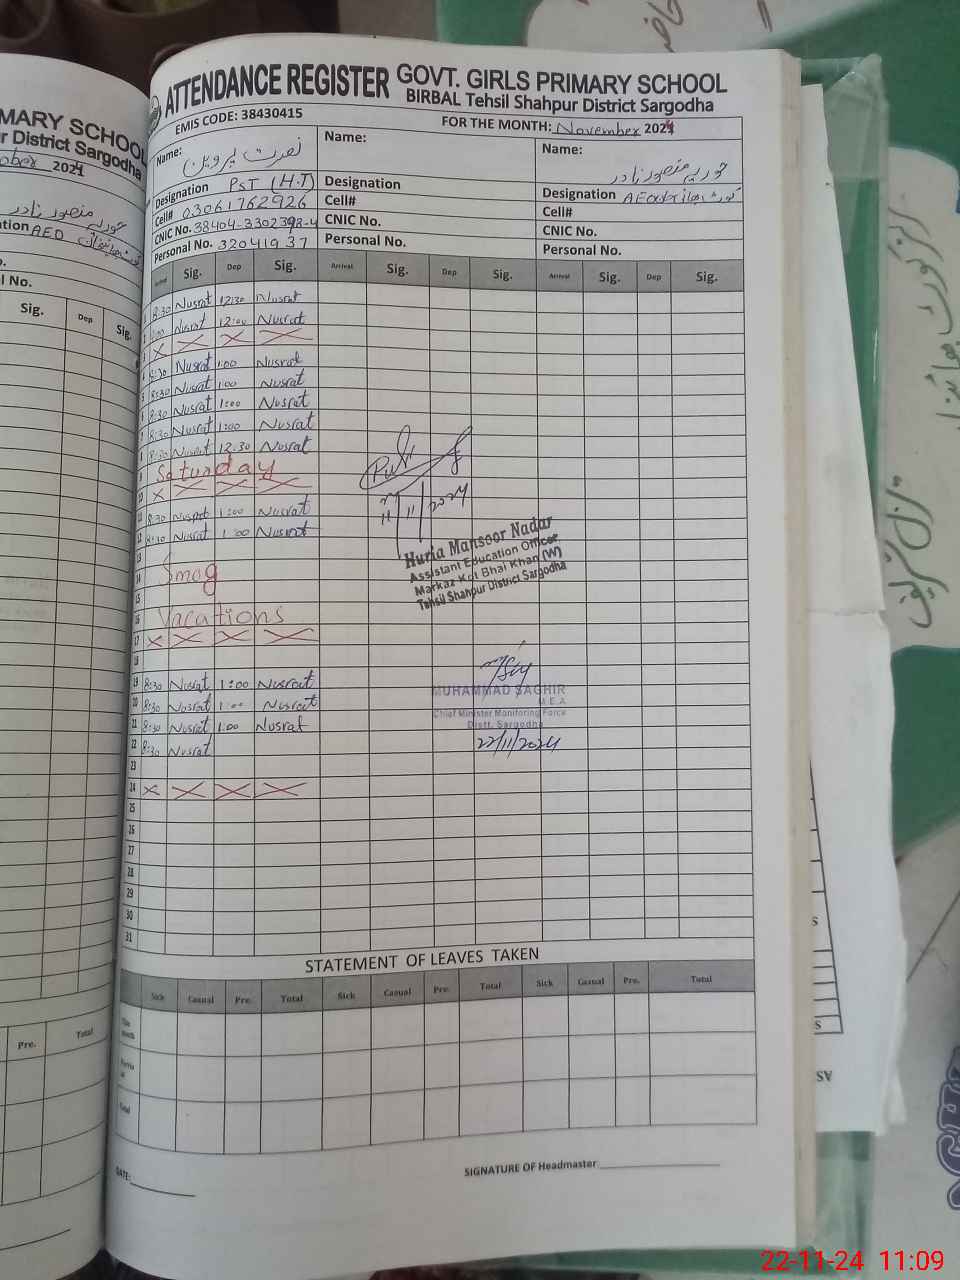 ATTENDANCE REGISTER GOVT. GIRLS PRIMARY SCHOOL
BIRBAL Tehsil Shahpur District Sargodha
EMIS CODE: 38430415
FOR THE MONTH: November 2024
Name: نصرت پروین
Name:
Name: حوریہ منصور نادر
Designation PST (H.T)
Designation
Designation AEO
Cell# 03061762926
Cell#
Cell#
CNIC No. 38404-3302398-4
CNIC No.
CNIC No.
Personal No. 32041937
Personal No.
Personal No.
Arrival Sig. Dep Sig. Arrival Sig. Dep Sig. Arrival Sig. Dep Sig.
1 8:30 Nusrat 12:30 Nusrat
2 Nusrat 12:00 Nusrat
3 X X X X
4 8:30 Nusrat 1:00 Nusrat
5 8:30 Nusrat 1:00 Nusrat
6 8:30 Nusrat 1:00 Nusrat
7 8:30 Nusrat 1:00 Nusrat
8 8:30 Nusrat 12:30 Nusrat
9 Saturday
10 X X X X
11 8:30 Nusrat 1:00 Nusrat
12 8:30 Nusrat 1:00 Nusrat
13
14 Smog
15
16 Vacations
17 X X X X
18
19 8:30 Nusrat 1:00 Nusrat
20 8:30 Nusrat 1:00 Nusrat
21 8:30 Nusrat 1:00 Nusrat
22 8:30 Nusrat
23
24 X X X X
25
26
27
28
29
30
31
11/2024
Huria Mansoor Nadar
Assistant Education Officer
Markaz Kot Bhai Khan (W)
Tehsil Shahpur District Sargodha
MUHAMMAD SAGHIR
M.E.A
Chief Minister Monitoring Force
Distt. Sargodha
22/11/2024
STATEMENT OF LEAVES TAKEN
Sick Casual Pre. Total Sick Casual Pre. Total Sick Casual Pre. Total
Total
DATE:
SIGNATURE OF Headmaster
MARY SCHOOL
District Sargodha
ober 2024
حوریہ منصور نادر
tion AEO
l No.
Sig. Dep Sig.
Pre. Total
22-11-24 11:09